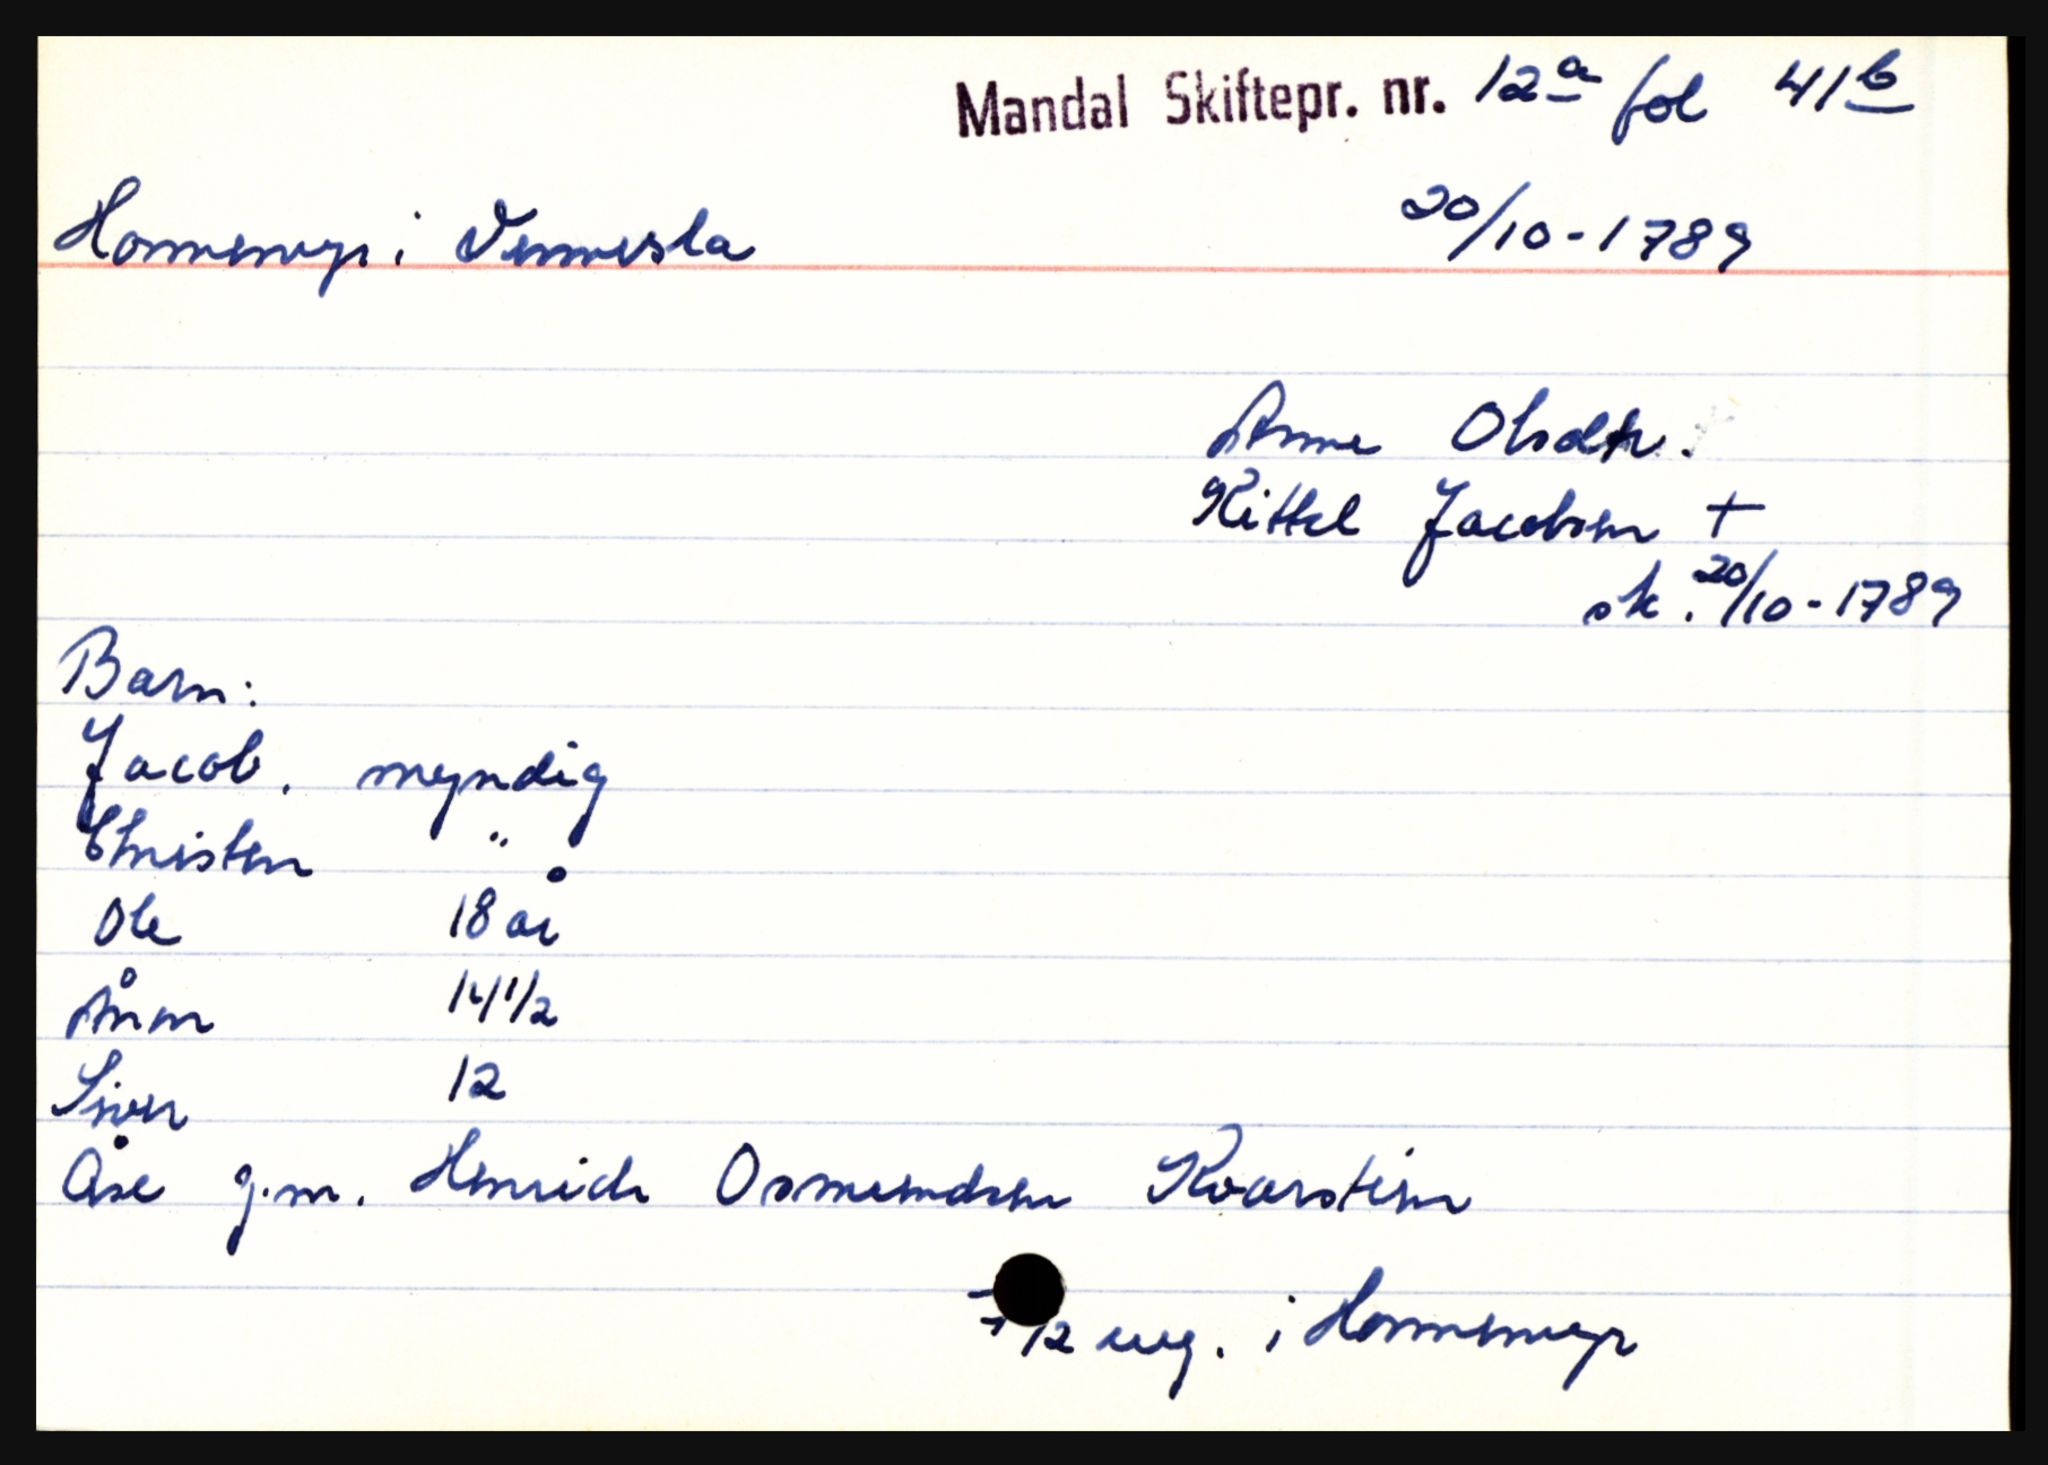 Mandal Skiftepr. nr. 12a fol 41b
Hommenyr i Vennesla 20/10-1789
Anne Olsdtr.
Kittel Jacobsen +
sk. 20/10-1789
Barn:
Jacob, myndig
Christen "
Ole 18 år
Ånen 14 1/2
Siver 12
Åse g.m. Henrich Osmundsen Kvarstein
1/2 eng. i Hommenyr